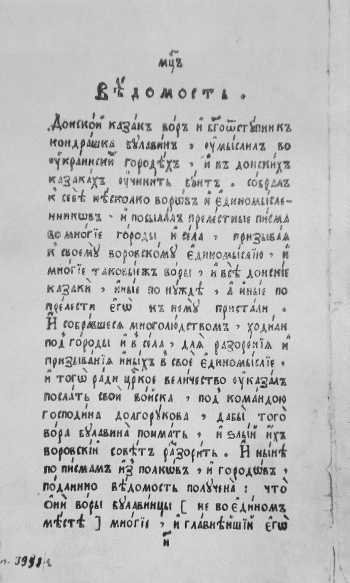 мцъ
Вѣдомость.
Донской казакъ воръ и бг҃оѿступникъ
кондрашка булавинъ, оумыслилъ во
оукраинскиѯ городѣхъ, и въ донскихъ
казакахъ оучинить бунтъ. собралъ
къ себѣ нѣсколько воровъ и единомысле-
нниковъ. и посылалъ прелестные писма
во многїе городы и села, призывая
къ своему воровскому единомыслїю, и
многїе таковыежъ воры, и всѣ донскїе
казаки, иные по нуждѣ, а иные по
прелести егѡ къ нему пристали.
И собрався многолюдствомъ, ходили
под городы и в села, для разоренїя и
призыванїя иныхъ в своё единомыслїе.
и тогѡ ради цр҃кое величество оуказалъ
послать свои войска, под командою
господина долгорукова, дабы того
вора булавина поимать, и ѕлый ихъ
воровскїй совѣтъ разорить. И нынѣ
по писмамъ из полковъ, и городовъ,
поданнїю вѣдомость получена: что
оній воры булавинцы [ не во единомъ
мѣстѣ ] многїе, и главнѣйшїй егѡ
и